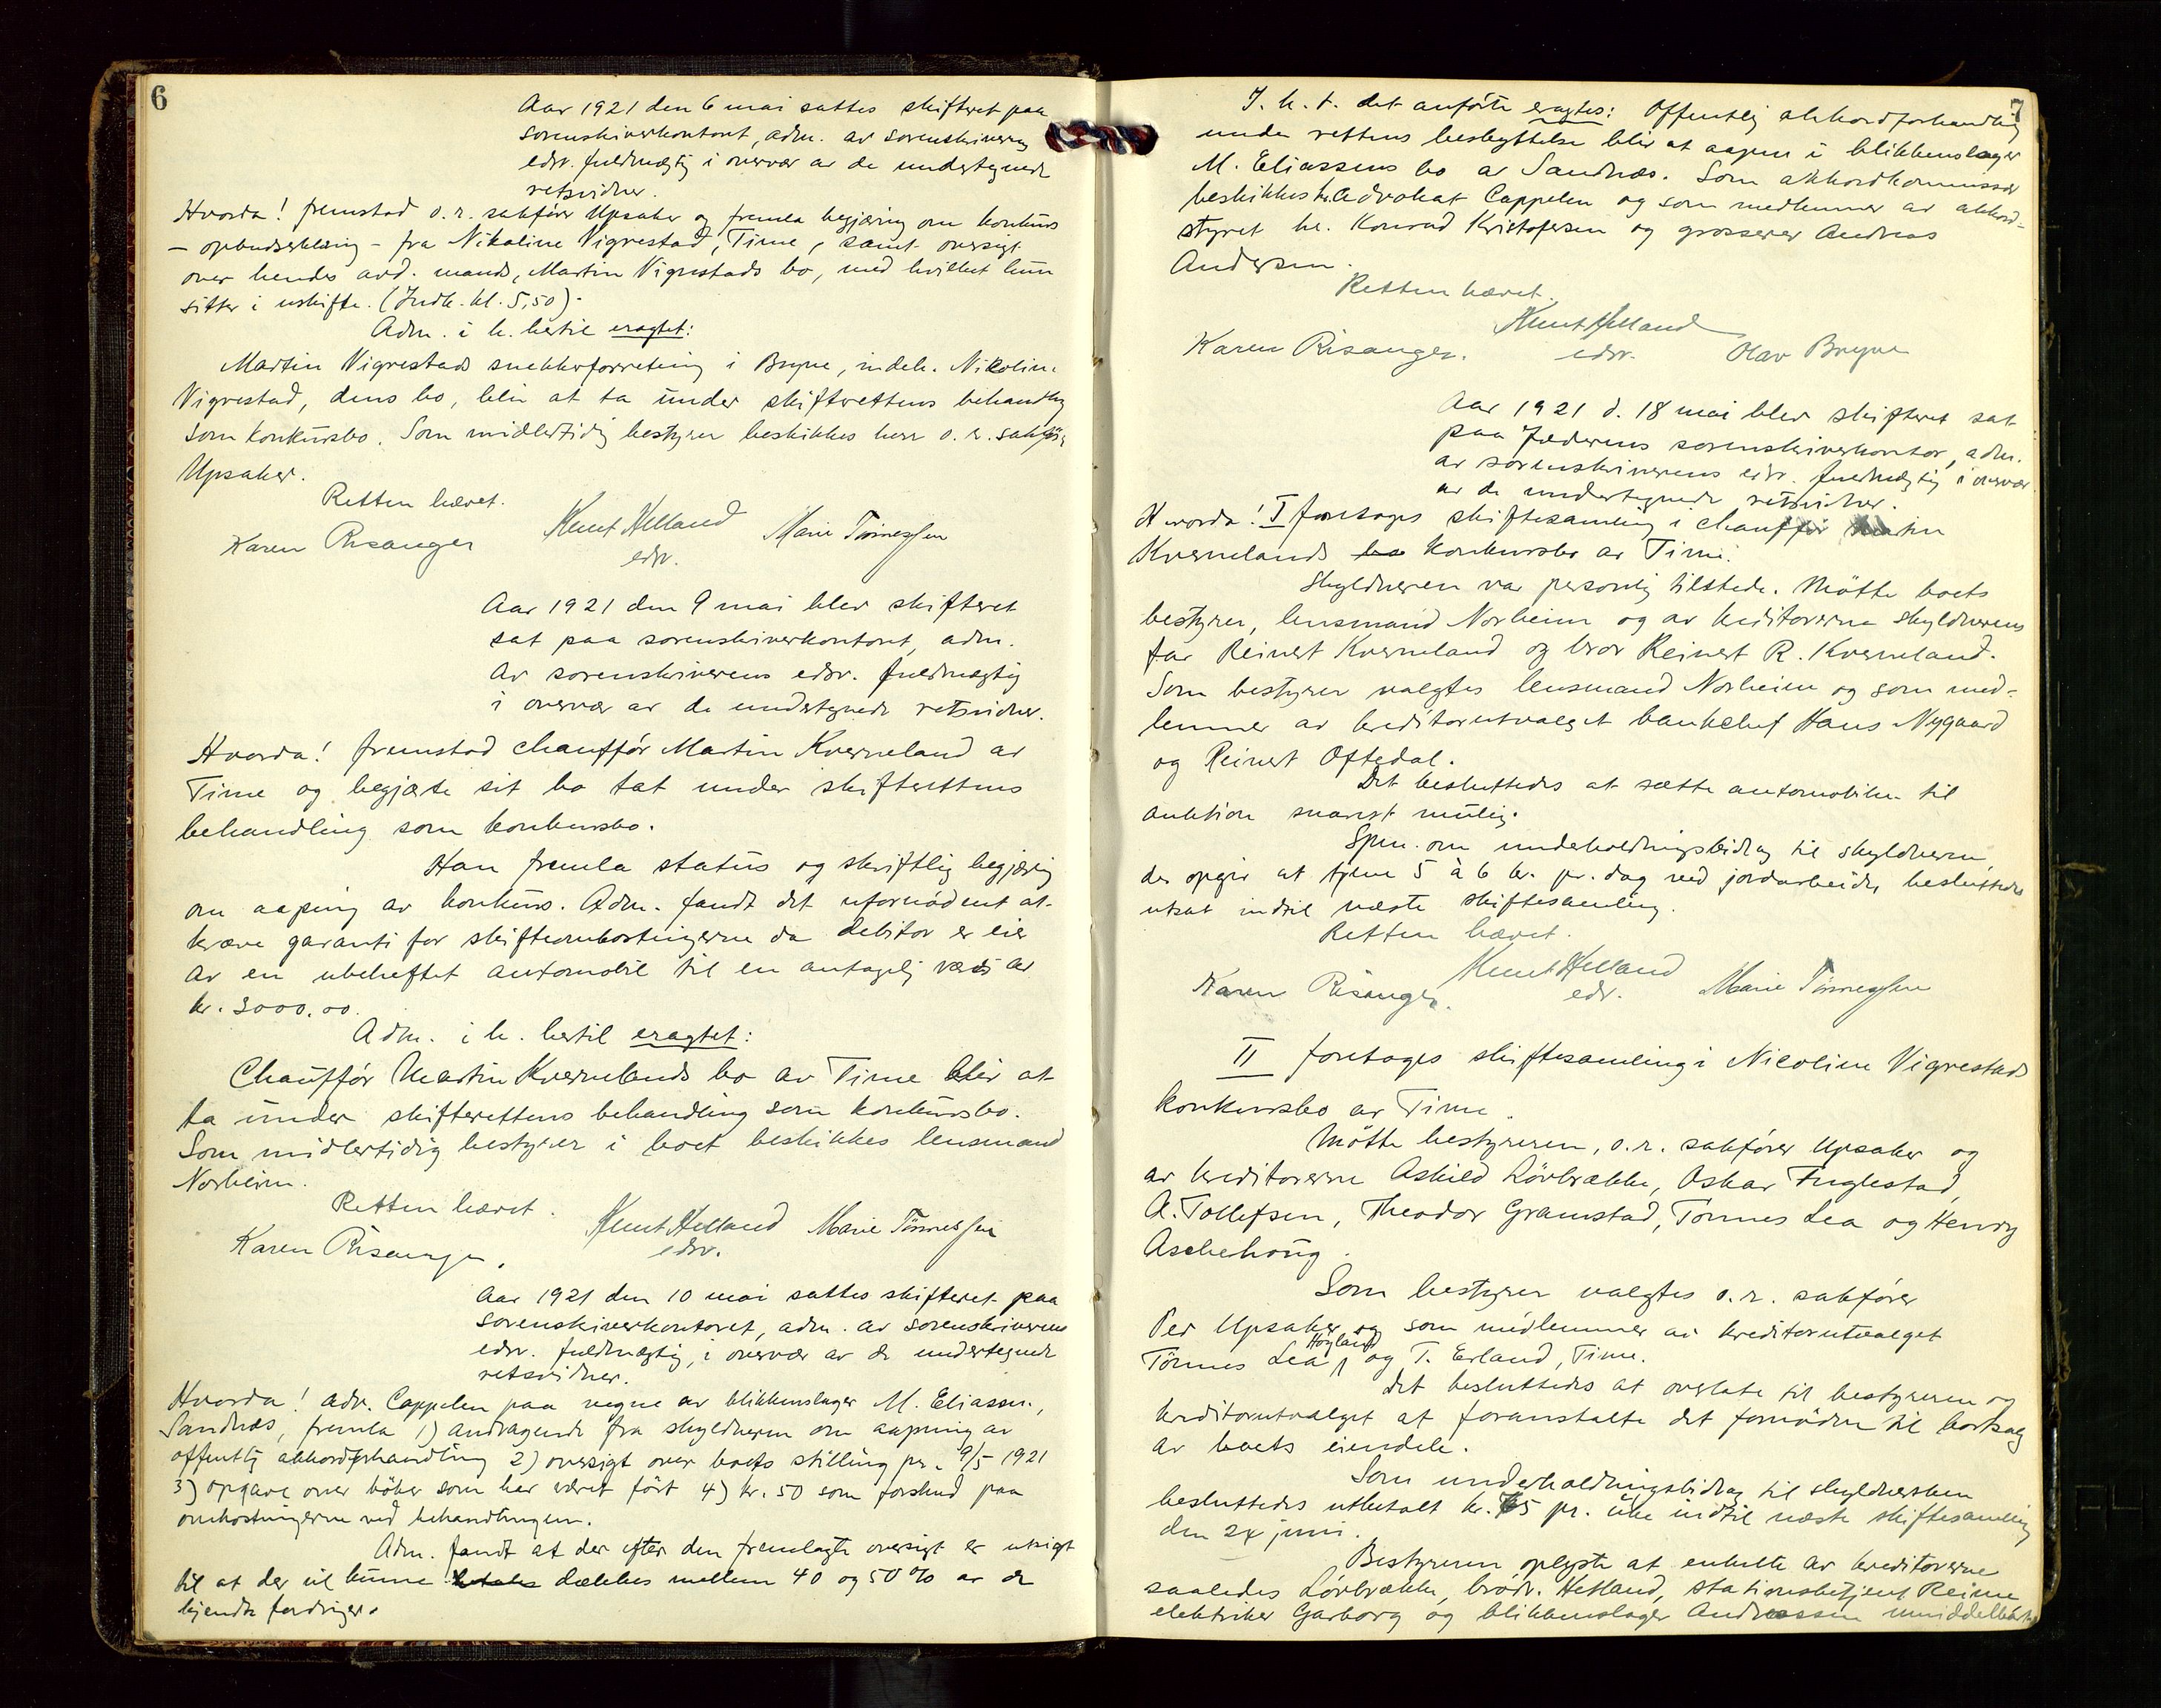 6
Aar 1921 den 6 mai sattes skifteret paa
sorenskriverkontoret, adm. av sorenskriverens
edsv. fuldmægtig i overvær av de undertegnede
retsvidner.
Hvorda! fremstod o.r. sakfører Upsaker og fremla begjæring om konkurs
- opbudserklæring - fra Nikoline Vigrestad, Time, samt oversigt
over hendes avd. mands, Martin Vigrestads bo, med hvilket hun
sitter i uskifte. (Indk. kl. 5,50).
Adm. i h. hertil eragtet:
Martin Vigrestads snekkerforretning i Bryne, indeh. Nikoline
Vigrestad, dens bo, blir at ta under skifterettens behandling
som konkursbo. Som midlertidig bestyrer beskikkes herr o. r. sakfører
Upsaker.
Retten hævet.
Karen Risanger Knut Helland Marie Tönnessen
edsv.
Aar 1921 den 9 mai blev skifteret
sat paa sorenskriverkontoret, adm.
av sorenskriverens edsv. fuldmægtig
i overvær av de undertegnede retsvidner.
Hvorda! fremstod chauffør Martin Kverneland av
Time og begjærte sit bo tat under skifterettens
behandling som konkursbo.
Han fremla status og skriftlig begjæring
om aapning av konkurs. Adm. fandt det ufornödent at
kræve garanti for skifteomkostningerne da debitor er eier
av en ubeheftet automobil til en antagelig værdi av
kr. 3000.00.
Adm. i h. hertil eragtet:
Chauffør Martin Kvernelands bo av Time blir at
ta under skifterettens behandling som konkursbo.
Som midlertidig bestyrer i boet beskikkes lensmand
Norheim.
Retten hævet.
Karen Risanger. Knut Helland Marie Tönnessen
edsv.
Aar 1921 den 10 mai sattes skifteret paa
sorenskriverkontoret, adm. av sorenskriverens
edsv. fuldmægtig, i overvær av de undertegnede
retsvidner.
Hvorda! adv. Cappelen paa vegne av blikkenslager M. Eliassen,
Sandnæs, fremla 1) andragende fra skyldneren om aapning av
offentlig akkordforhandling 2) oversigt over boets stilling pr. 9/5 1921
3) opgave over böker som har været fört 4) kr. 50 som forskud paa
omkostningerne ved behandlingen.
Adm. fandt at der efter den fremlagte oversigt er utsigt
til at der vil kunne dækkes mellem 40 og 50% av de
kjendte fordringer.
7
I. h. t. det anförte eragtes: Offentlig akkordforhandling
under rettens beskyttelse blir at aapne i blikkenslager
M. Eliassens bo av Sandnæs. Som akkordkommissær
beskikkes hr. Advokat Cappelen og som medlemmer av akkord-
styret hr. Konrad Kristofersen og grosserer Andreas
Andersen.
Retten hævet.
Karen Risanger. Knut Helland Olav Bryne
edsv.
Aar 1921 d. 18 mai blev skifteret sat
paa Jæderens sorenskriverkontor, adm.
av sorenskriverens edsv. fuldmægtig i overvær
av de undertegnede retsvidner.
Hvorda! I foretages skiftesamling i chauffør Martin
Kvernelands bo konkursbo av Time.
Skyldneren var personlig tilstede. Mötte boets
bestyrer, lensmand Norheim og av kreditorerne skyldnerens
far Reinert Kverneland og bror Reinert R. Kverneland.
Som bestyrer valgtes lensmand Norheim og som med-
lemmer av kreditorutvalget bankchef Hans Nygaard
og Reinert Oftedal.
Det besluttedes at sætte automobilen til
auktion snarest mulig.
Spm. om underholdningsbidrag til skyldneren,
der opgir at tjene 5 à 6 kr. pr. dag ved jordarbeide, besluttedes
utsat indtil næste skiftesamling.
Retten hævet.
Karen Risanger. Knut Helland Marie Tönnessen
edsv.
II foretages skiftesamling i Nicoline Vigrestads
konkursbo av Time.
Mötte bestyreren, o.r. sakfører Upsaker og
av kreditorerne Askild Lövbrække, Oskar Fuglestad,
A. Tollefsen, Theodor Gramstad, Tönnes Lea og Henry
Aschehoug.
Som bestyrer valgtes o.r. sakfører
Per Upsaker og som medlemmer av kreditorutvalget
Tönnes Lea, Högland og T. Erland, Time.
Det besluttedes at overlate til bestyreren og
kreditorutvalget at foranstalte det fornödne til bortsalg
av boets eiendele.
Som underholdningsbidrag til skyldnersken
besluttedes utbetalt kr. 75 pr. uke indtil næste skiftesamling
den 24 juni.
Bestyreren oplyste at enkelte av kreditorerne
saaledes Lövbrække, brödr. Hetland, stationsbetjent Reime
elektriker Garborg og blikkenslager Andreassen umiddelbart